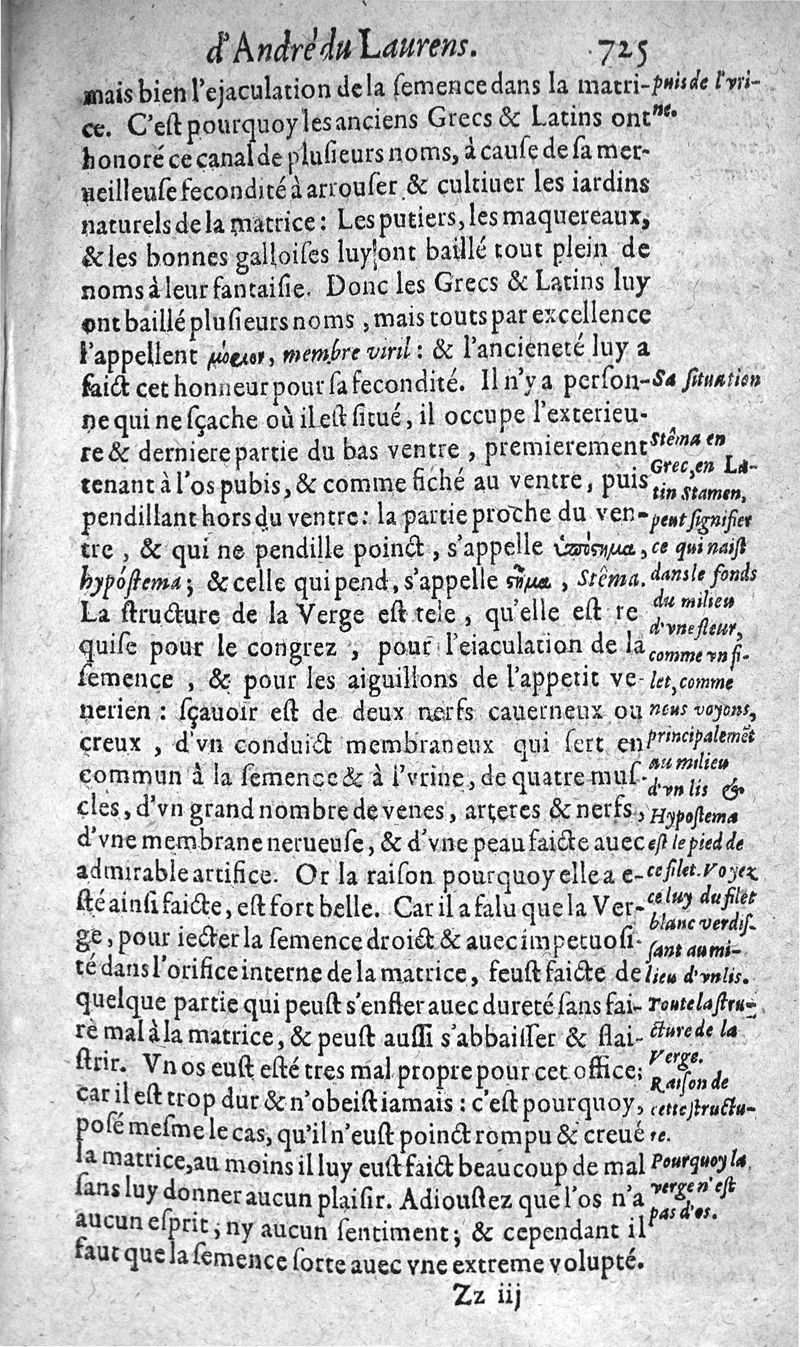 d'André du Laurens. 725
mais bien l'ejaculation de la ſemence dans la matri-
ce. C'eſt pourquoy les anciens Grecs & Latins ont
honoré ce canal de pluſieurs noms, à cauſe de ſa mer-
ueilleuſe fecondité à arrouſer & cultiuer les iardins
naturels de la matrice: Les putiers, les maquereaux,
& les bonnes galloiſes luy ont baillé tout plein de
noms à leur fantaiſie. Donc les Grecs & Latins luy
ont baillé pluſieurs noms, mais touts par excellence
l'appellent membre viril: & l'ancieneté luy a
faict cet honneur pour ſa fecondité. Il n'y a perſon-
ne qui ne ſçache où il eſt ſitué, il occupe l'exterieu-
re & derniere partie du bas ventre, premierement
tenant à l'os pubis, & comme fiché au ventre, puis
pendillant hors du ventre: la partie proche du ven-
tre, & qui ne pendille poinct, s'appelle ὑπόστημα,
hypóſtema; & celle qui pend, s'appelle στῆμα, Stêma.
La ſtructure de la Verge eſt tele, qu'elle eſt re
quiſe pour le congrez, pour l'eiaculation de la
ſemence, & pour les aiguillons de l'appetit ve-
nerien: ſçauoir eſt de deux nerfs cauerneux ou
creux, d'vn conduict membraneux qui ſert en
commun à la ſemence & à l'vrine, de quatre muſ-
cles, d'vn grand nombre de venes, arteres & nerfs,
d'vne membrane nerueuſe, & d'vne peau faicte auec
admirable artifice. Or la raiſon pourquoy elle a e-
ſté ainſi faicte, eſt fort belle. Car il a falu que la Ver-
ge, pour iecter la ſemence droict & auec impetuoſi-
té dans l'orifice interne de la matrice, feuſt faicte de
quelque partie qui peuſt s'enfler auec dureté ſans fai-
re mal à la matrice, & peuſt auſſi s'abbaiſſer & flai-
ſtrir. Vn os euſt eſté tres mal propre pour cet office;
car il eſt trop dur & n'obeiſt iamais: c'eſt pourquoy,
poſé meſme le cas, qu'il n'euſt poinct rompu & creué
la matrice, au moins il luy euſt faict beaucoup de mal
ſans luy donner aucun plaiſir. Adiouſtez que l'os n'a
aucun eſprit, ny aucun ſentiment; & cependant il
faut que la ſemence ſorte auec vne extreme volupté.
Zz iij
puis de l'vri-
ne.
Sa ſituation
Stêma en
Grec, en La-
tin Stamen,
peut ſignifier
ce qui naiſt
dans le fonds
du milieu
d'vne fleur,
comme vn fi-
let, comme
nous voyons,
principalemēt
au milieu
d'vn lis &
Hypoſtema
eſt le pied de
ce filet. Voyez
celuy du filet
blanc verdiſ-
ſant au mi-
lieu d'vn lis.
Toute la ſtru-
cture de la
Verge.
Raiſon de
cette ſtructu-
re.
Pourquoy la
verge n'eſt
pas d'os.